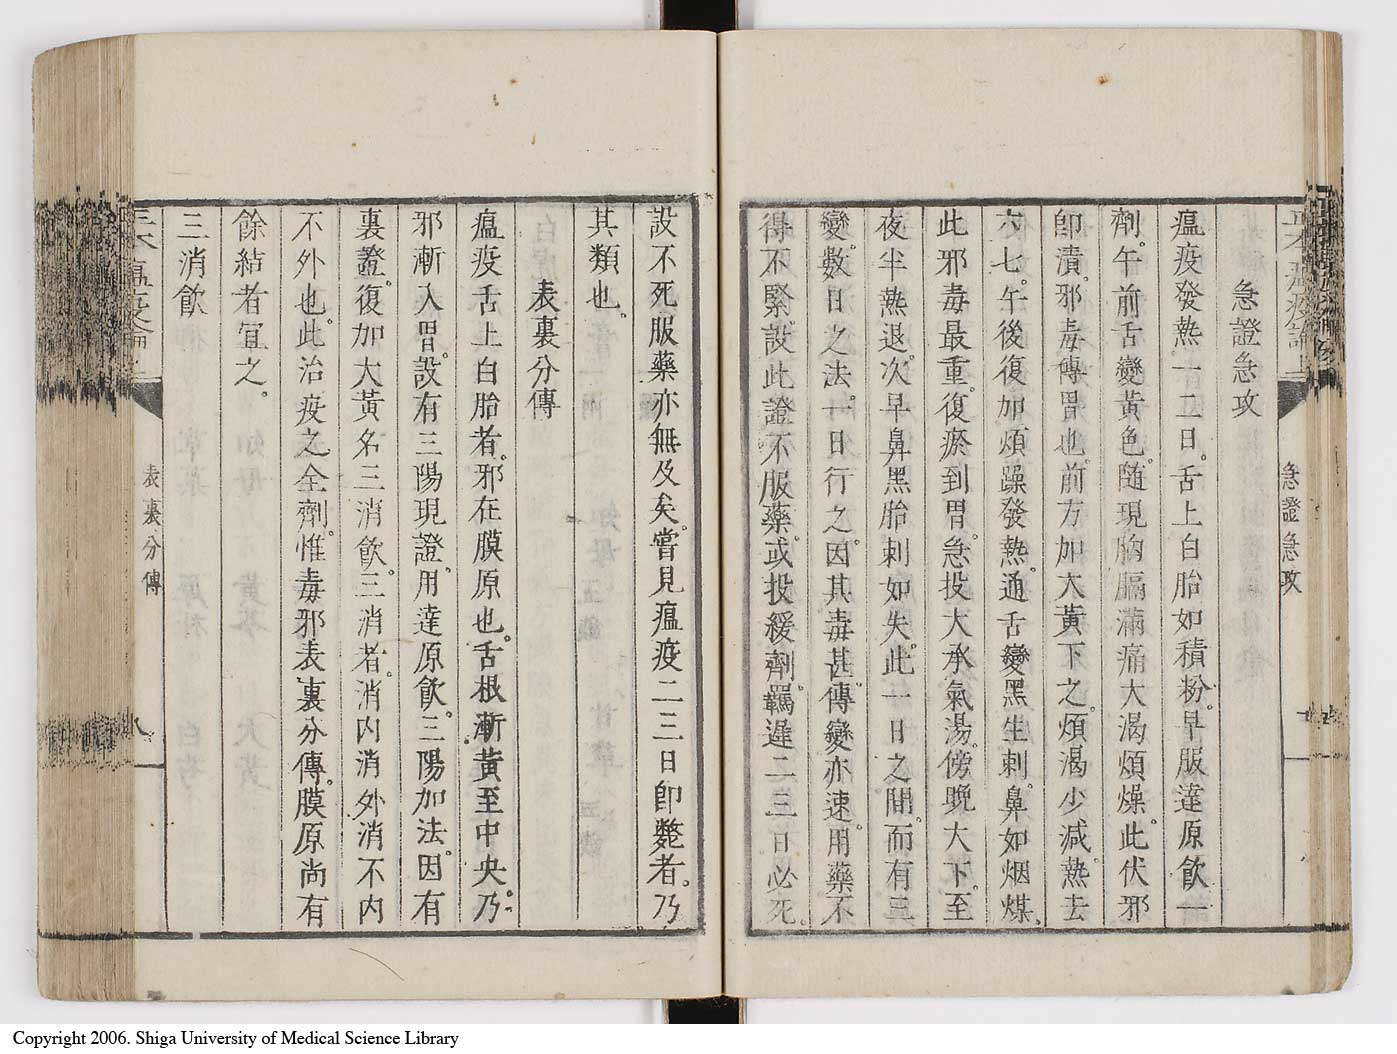 急證急攻
瘟疫發熱一二日。舌上白胎如積粉。早服達原飮一
劑。午前舌變黃色。隨現胸膈滿痛大渴煩燥。此伏邪
卽潰。邪毒傳胃也。前方加大黃下之。煩渴少減。熱去
六七。午後復加煩躁發熱。通舌變黑生刺。鼻如烟煤、
此邪毒最重。復瘀到胃。急投大承氣湯。傍晩大下。至
夜半熱退。次早鼻黑胎刺如失。此一日之間。而有三
變。數日之法。一日行之。因其毒甚。傳變亦速。用藥不
得不緊設此證不服藥。或投緩劑。羈遲二三日必死。
急證急攻
設不死服藥亦無及矣。嘗見瘟疫二三日卽斃者。乃
其類也。
表裏分傳
瘟疫舌上白胎者。邪在膜原也。舌根漸黃至中央。乃
邪漸入胃。設有三陽現證。用達原飮。三陽加法。因有
裏證。復加大黃名三消飮。三消者。消內消外消不內
不外也。此治疫之全劑。惟毒邪表裏分傳。膜原尙有
餘結者宜之。
三消飮
表裏分傳
八
Copyright 2006. Shiga University of Medical Science Library